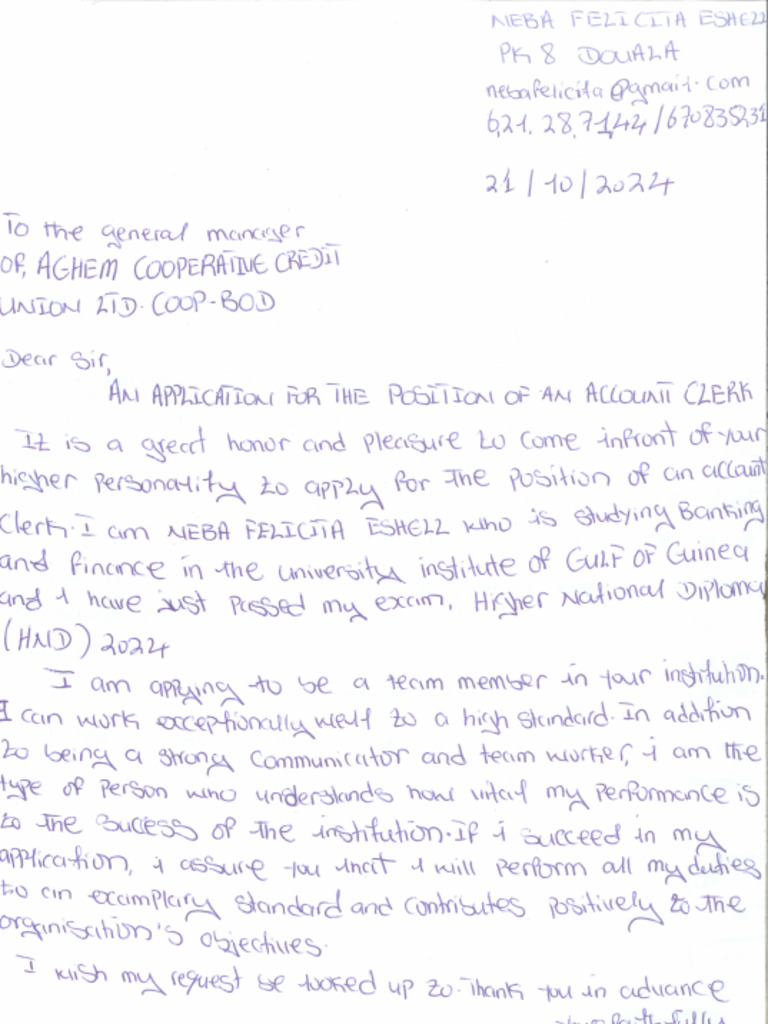 NEBA FELICITA ESHELL
PK 8 DOUALA
nebafelicita@gmail.com
621.28.71.42/670835231
21/10/2024
To the general manager
OF, AGHEM COOPERATIVE CREDIT
UNION LTD. COOP-BOD
Dear Sir,
AN APPLICATION FOR THE POSITION OF AN ACCOUNT CLERK
It is a great honor and pleasure to come infront of your
higher personality to apply for the position of an account
clerk. I am NEBA FELICITA ESHELL who is studying Banking
and finance in the university institute of GULF OF Guinea
and I have just passed my exam, Higher National Diploma
(HND) 2024
I am applying to be a team member in your institution.
I can work exceptionally well to a high standard. In addition
to being a strong communicator and team worker, i am the
type of person who understands how vital my performance is
to the sucess of the institution. If i succeed in my
application, i assure you that I will perform all my duties
to an examplary standard and contributes positively to the
organisation's objectives.
I wish my request be looked up to. Thank you in advance